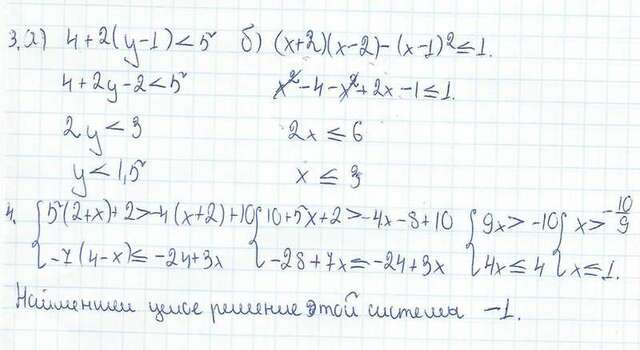 3. а) 4+2(y-1)<5 б) (x+2)(x-2)-(x-1)²≤1.
4+2y-2<5 x²-4-x²+2x-1≤1.
2y<3 2x≤6
y<1,5 x≤3
4. {5(2+x)+2>-4(x+2)+10 {10+5x+2>-4x-8+10 {9x>-10 {x>-10/9
-7(4-x)≤-24+3x -28+7x≤-24+3x 4x≤4 x≤1.
Наименшем целое решение этой системы -1.